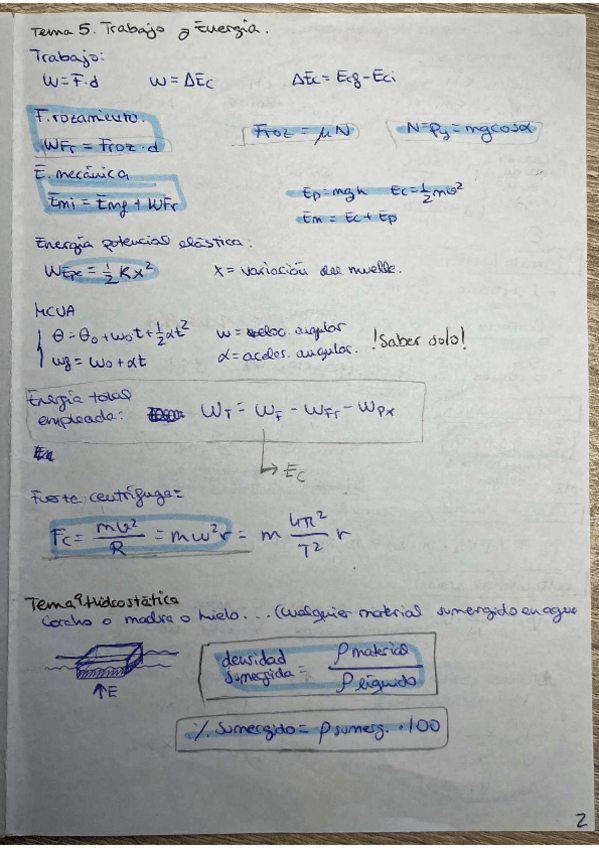 Tema 5. Trabajo y Energía.
Trabajo:
W = F · d    W = ΔEc    ΔEc = Ecf - Eci
F. rozamiento:
WFr = Froz · d    Froz = μN    N = Py = mg cosα
E. mecánica
Emi = Emf + WFr    Ep = mgh    Ec = ½mv²
Em = Ec + Ep
Energía potencial elástica:
WEpx = ½Kx²    x = variación del muelle.
MCUA
θ = θ₀ + ω₀t + ½αt²    ω = veloc. angular    ¡Saber solo!
ωf = ω₀ + αt    α = aceler. angular.
Energía total
empleada:    WT = WF - WFr - WPx
Ec
Fuerte centrífuga =
Fc = mv²/R = mω²r = m 4π²/T² r
Tema 9 Hidrostática
Corcho o madera o hielo... (Cualquier material sumergido en agua
densidad sumergida = ρ material / ρ líquido
↑E
% Sumergido = ρ sumerg. · 100
2